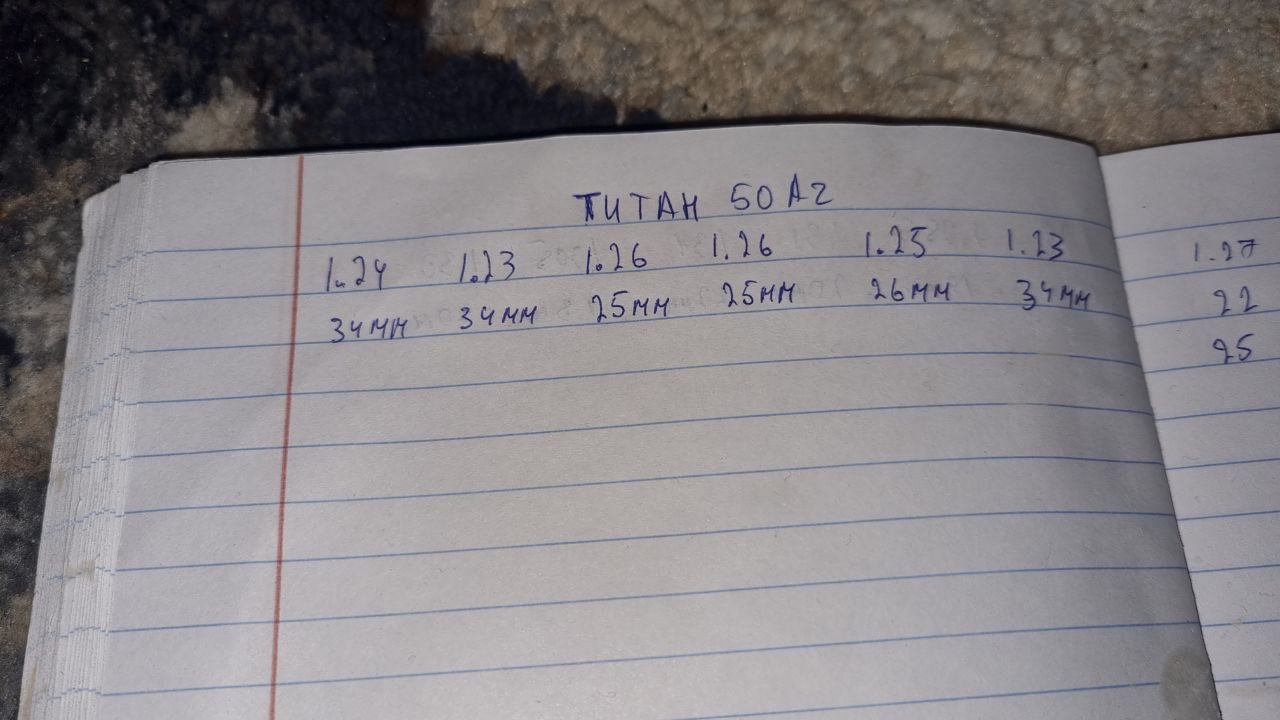 ТИТАН 50 Аг
1.24 1.23 1.26 1.26 1.25 1.23
34мм 34мм 25мм 25мм 26мм 34мм
1.27
22
25